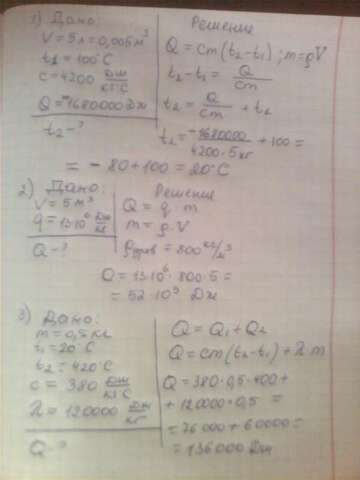 1) Дано:
V = 5л = 0,005 м³
t₁ = 100°C
c = 4200 Дж/кг°C
Q = -1680000 Дж
t₂ - ?
Решение
Q = cm(t₂ - t₁); m = ρV
t₂ - t₁ = Q/cm
t₂ = Q/cm + t₁
t₂ = -1680000/4200·5кг + 100 =
= - 80 + 100 = 20°C
2) Дано:
V = 5 м³
q = 13·10⁶ Дж/кг
Q - ?
Решение
Q = q · m
m = ρ · V
ρдров = 800 кг/м³
Q = 13·10⁶ · 800 · 5 =
= 52·10⁹ Дж
3) Дано:
m = 0,5 кг
t₁ = 20°C
t₂ = 420°C
c = 380 Дж/кг°C
λ = 120000 Дж/кг
Q - ?
Q = Q₁ + Q₂
Q = cm(t₂ - t₁) + λ m
Q = 380 · 0,5 · 400 +
+ 120000 · 0,5 =
= 76000 + 60000 =
= 136000 Дж